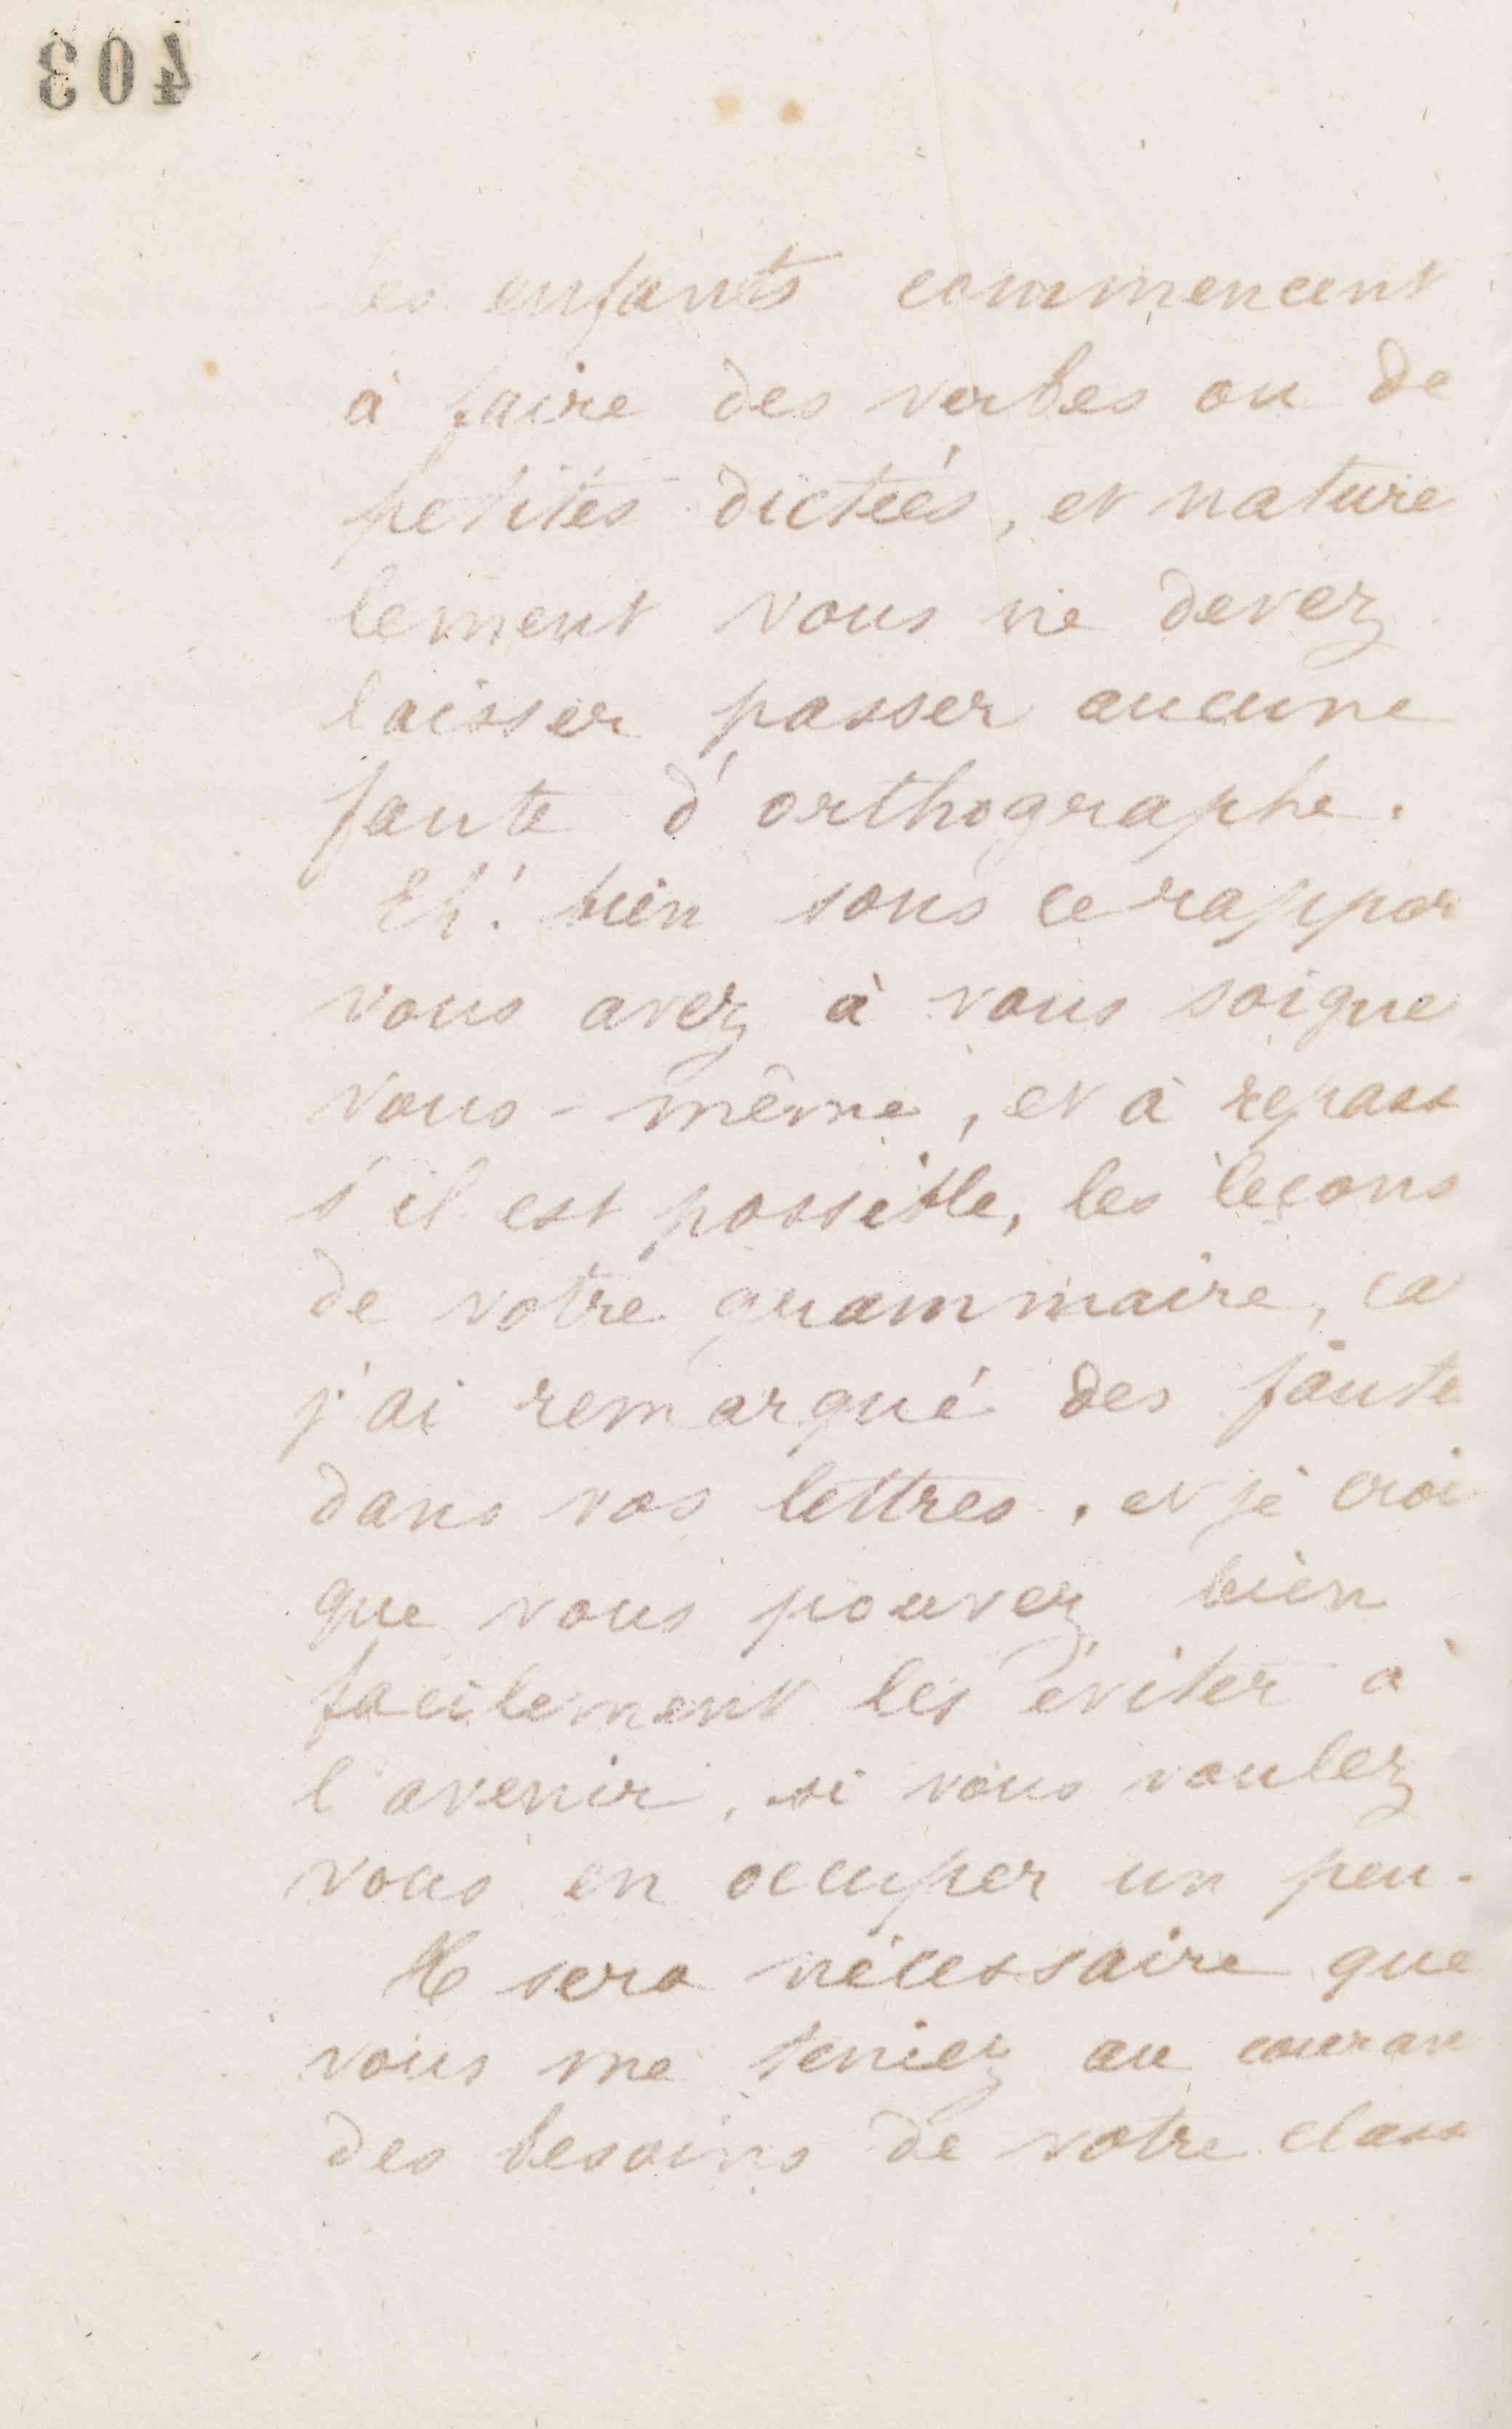 403
les enfants commencent
à faire des verbes ou de
petites dictées, et nature
lement vous ne devez
laisser passer aucune
faute d'orthographe.
Eh! bien sous ce rappor
vous avez à vous soigne
vous-même, et à repass
s'il est possible, les leçons
de votre grammaire, ca
j'ai remarqué des faute
dans vos lettres, et je croi
que vous pouvez bien
facilement les éviter à
l'avenir, si vous voulez
vous en occuper un peu.
Il sera nécessaire que
vous me teniez au couran
des besoins de votre class